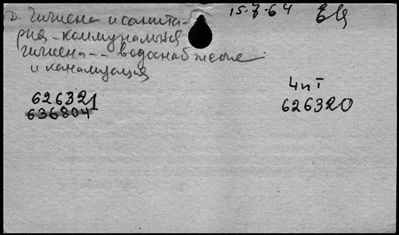 15-7-64
Д. Гигиена и санита-
рия - коммунальная
гигиена -- водоснабжение
и канализация
626321
636804
4п I
626320